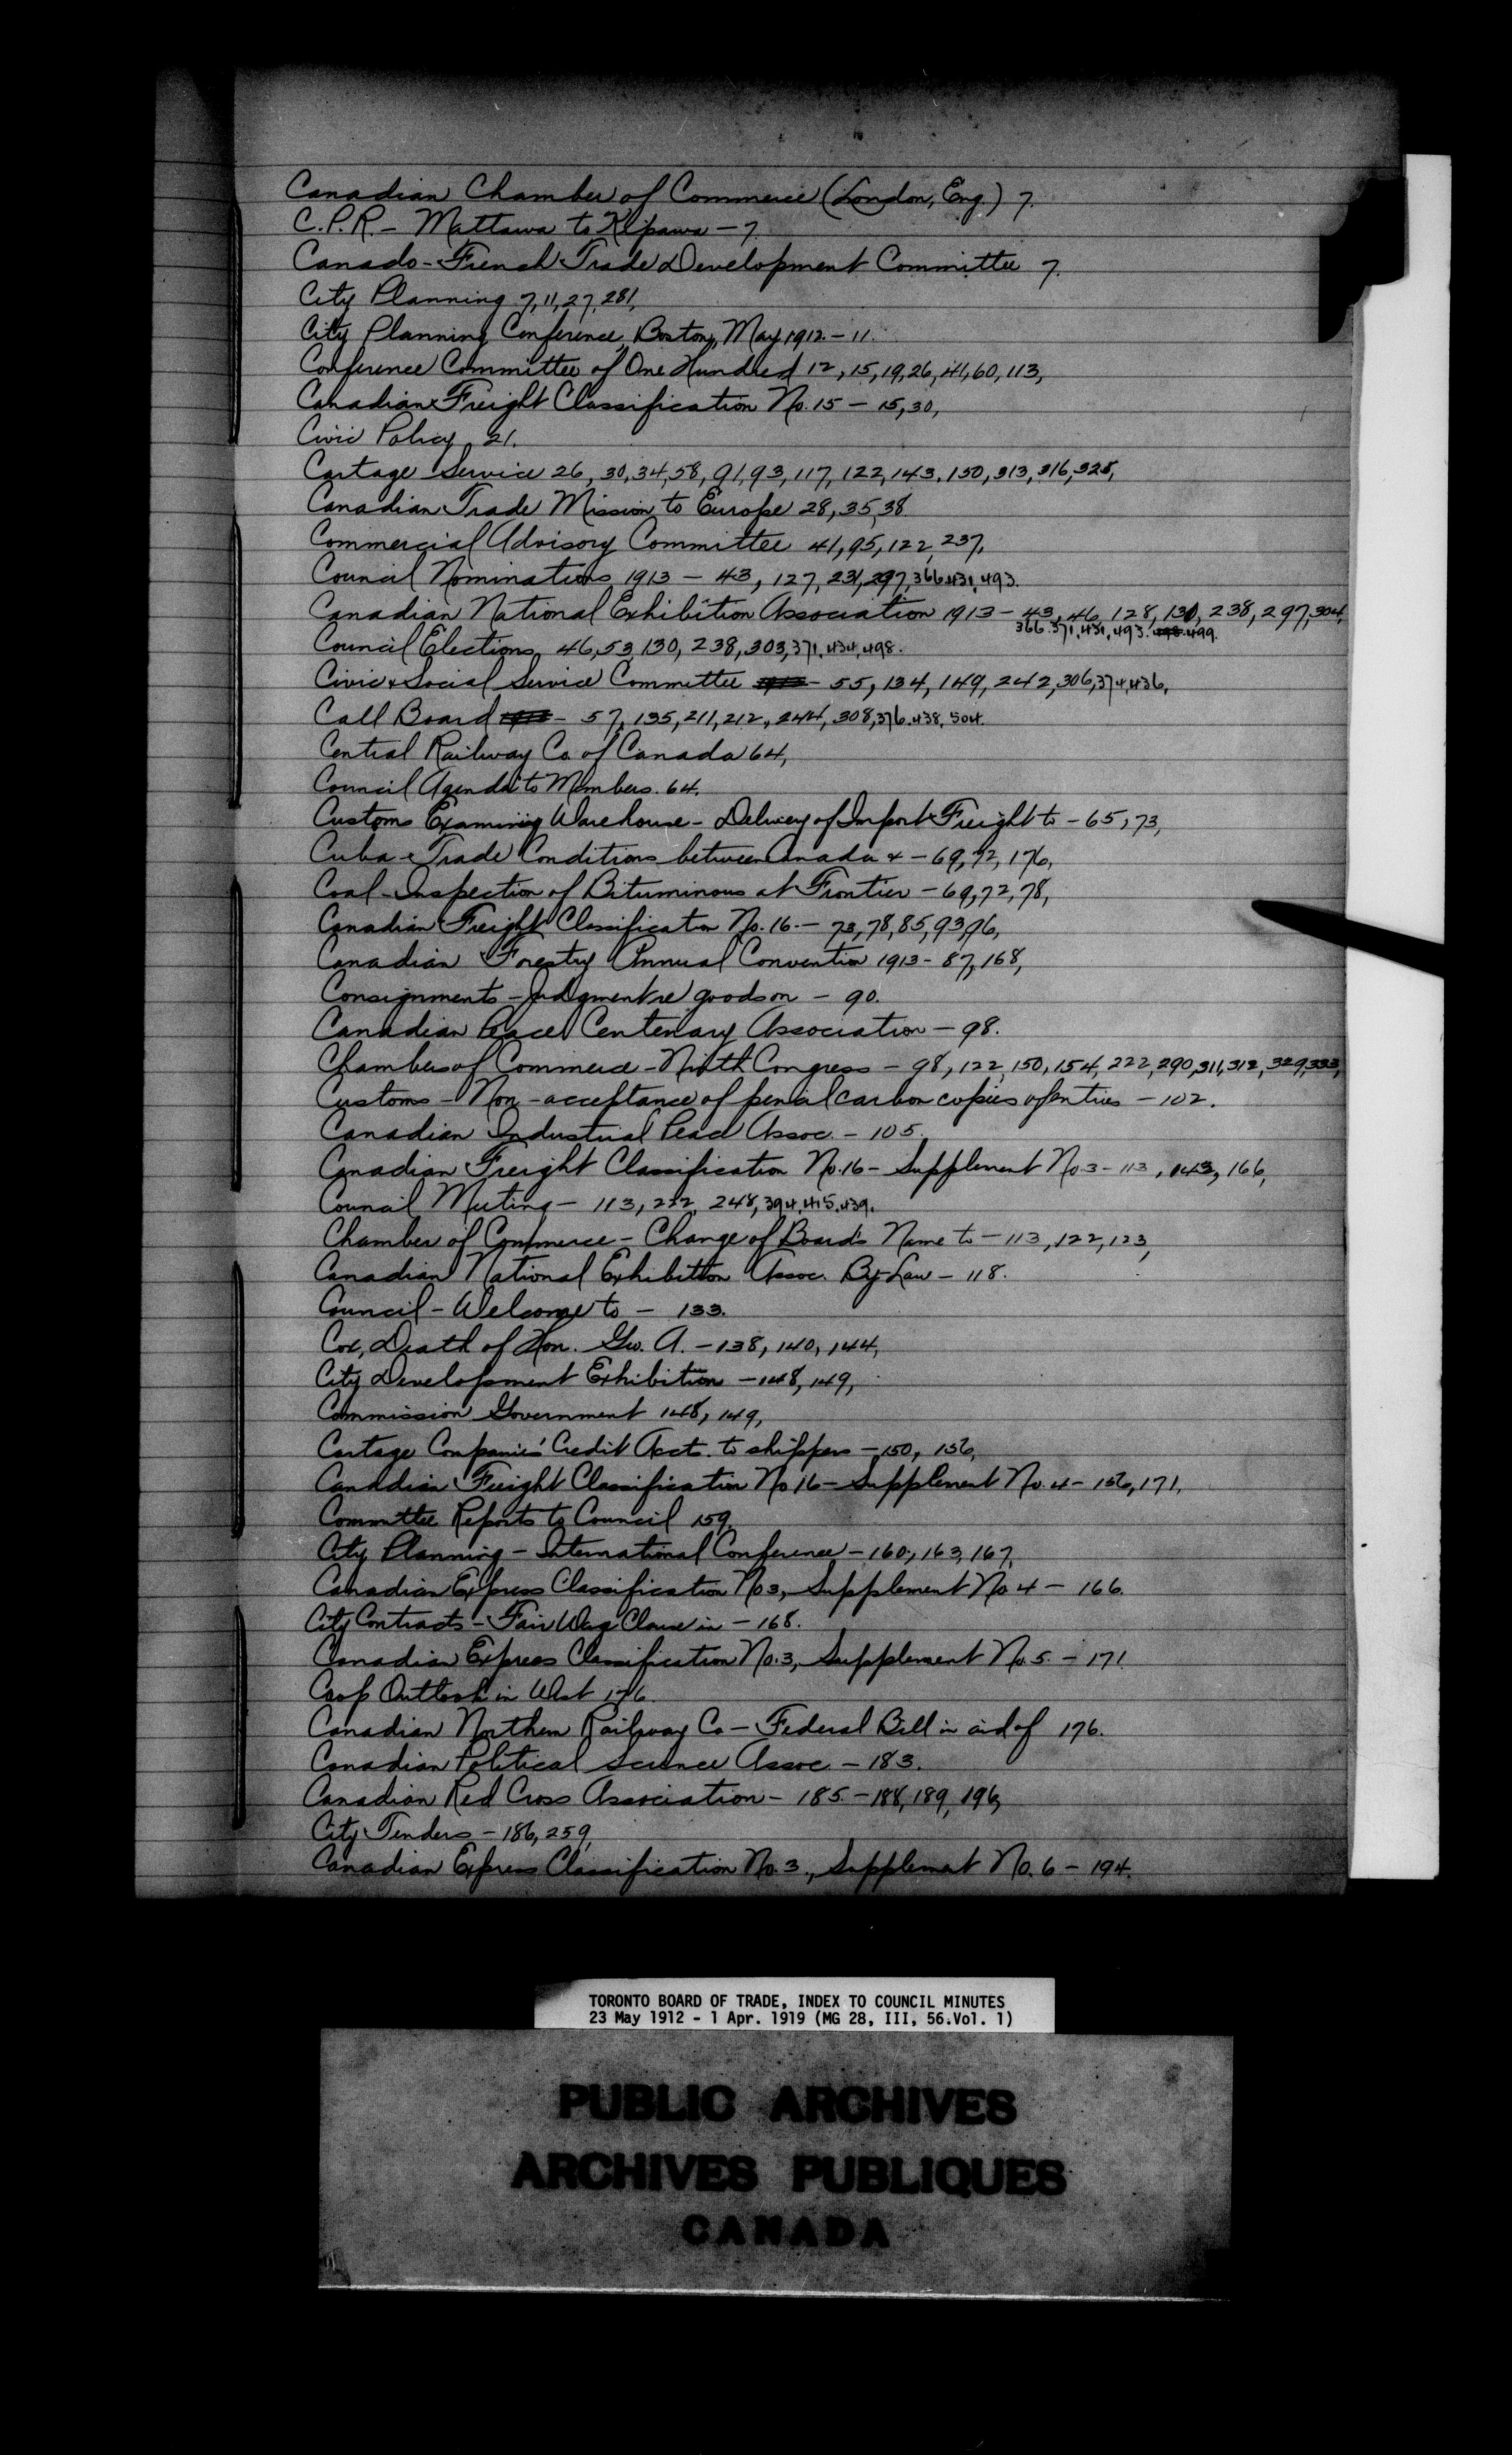 Canadian Chamber of Commerce (London, Eng.) 7.
C.P.R. - Mattawa to Kipawa - 7.
Canado-French Trade Development Committee 7.
City Planning 7, 11, 27, 281,
City Planning Conference, Boston, May, 1912. - 11.
Conference Committee of One Hundred 12, 15, 19, 26, 41, 60, 113,
Canadian Freight Classification No. 15 - 15, 30,
Civic Policy, 21.
Cartage Service 26, 30, 34, 58, 91, 93, 117, 122, 143, 150, 313, 316, 328,
Canadian Trade Mission to Europe 28, 35, 38.
Commercial Advisory Committee 41, 95, 122, 237,
Council Nominations, 1913 - 43, 127, 231, 297, 366, 431, 493.
Canadian National Exhibition Association 1913 - 43, 46, 128, 130, 238, 297, 304,
366. 371, 431, 493. 499.
Council Elections, 46, 53, 130, 238, 303, 371, 434, 498.
Civic & Social Service Committee - 55, 134, 149, 242, 306, 374, 436,
Call Board - 57, 135, 211, 212, 244, 308, 376. 438, 504.
Central Railway Co. of Canada 64,
Council Agenda to Members. 64.
Customs Examining Warehouse - Delivery of Import Freight to - 65, 73,
Cuba - Trade Conditions between Canada & - 69, 72, 176,
Coal - Inspection of Bituminous at Frontier - 69, 72, 78,
Canadian Freight Classification No. 16 - 73, 78, 85, 93, 96,
Canadian Forestry Annual Convention 1913 - 87, 168,
Consignments - Judgment re goods on - 90.
Canadian Peace Centenary Association - 98.
Chambers of Commerce - Ninth Congress - 98, 122, 150, 154, 222, 290, 311, 312, 329, 333,
Customs - Non-acceptance of pencil carbon copies of entries - 102.
Canadian Industrial Peace Assoc. - 105.
Canadian Freight Classification No. 16 - Supplement No. 3 - 113, 143, 166,
Council Meeting - 113, 222, 248, 394, 415, 439.
Chamber of Commerce - Change of Board's Name to - 113, 122, 123,
Canadian National Exhibition Assoc. By-Law - 118.
Council - Welcome to - 133.
Cox, Death of Hon. Geo. A. - 138, 140, 144,
City Development Exhibition - 148, 149,
Commission Government 148, 149,
Cartage Companies' Credit Accts. to shippers - 150, 156,
Canadian Freight Classification No 16 - Supplement No. 4 - 156, 171,
Committee Reports to Council 159,
City Planning - International Conference - 160, 163, 167,
Canadian Express Classification No 3, Supplement No 4 - 166.
City Contracts - Fair Wage Clause in - 168.
Canadian Express Classification No. 3, Supplement No. 5. - 171.
Crop Outlook in West 176.
Canadian Northern Railway Co - Federal Bill in aid of 176.
Canadian Political Science Assoc. - 183.
Canadian Red Cross Association - 185 - 188, 189, 196,
City Tenders - 186, 259,
Canadian Express Classification No. 3, Supplement No. 6 - 194.
TORONTO BOARD OF TRADE, INDEX TO COUNCIL MINUTES
23 May 1912 - 1 Apr. 1919 (MG 28, III, 56.Vol. 1)
PUBLIC ARCHIVES
ARCHIVES PUBLIQUES
CANADA